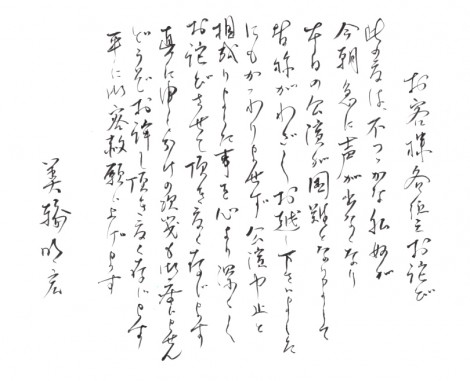 お客様各位にお詫び
此の度は、不つゝかな私奴が
今朝急に声が出なくなり
本日の公演が困難となりまして
皆様がわざ〳〵お越し下さいました
にもかゝわりませず公演中止と
相成りました事を心より深く
お詫びさせて頂き度く存じます
真に申し分けの次第も御座居ません
どうぞお許し頂き度く存じます
平に御容赦願い上げます
美輪明宏